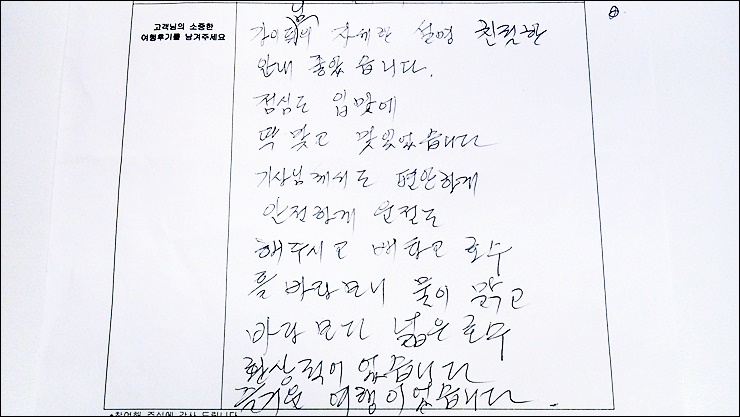 고객님의 소중한
여행후기를 남겨주세요
님의 자세한 설명 친절한
안내 좋았습니다.
점심도 입맛에
딱 맞고 맛있었습니다
기상님께서도 편안하게
안전하게 운전도
해주시고 배타고 호수
를 바라보니 물이 맑고
바라보다 넓은 호수
환상적이었습니다
즐거운 여행이었습니다.
*참여해 주심에 감사 드립니다